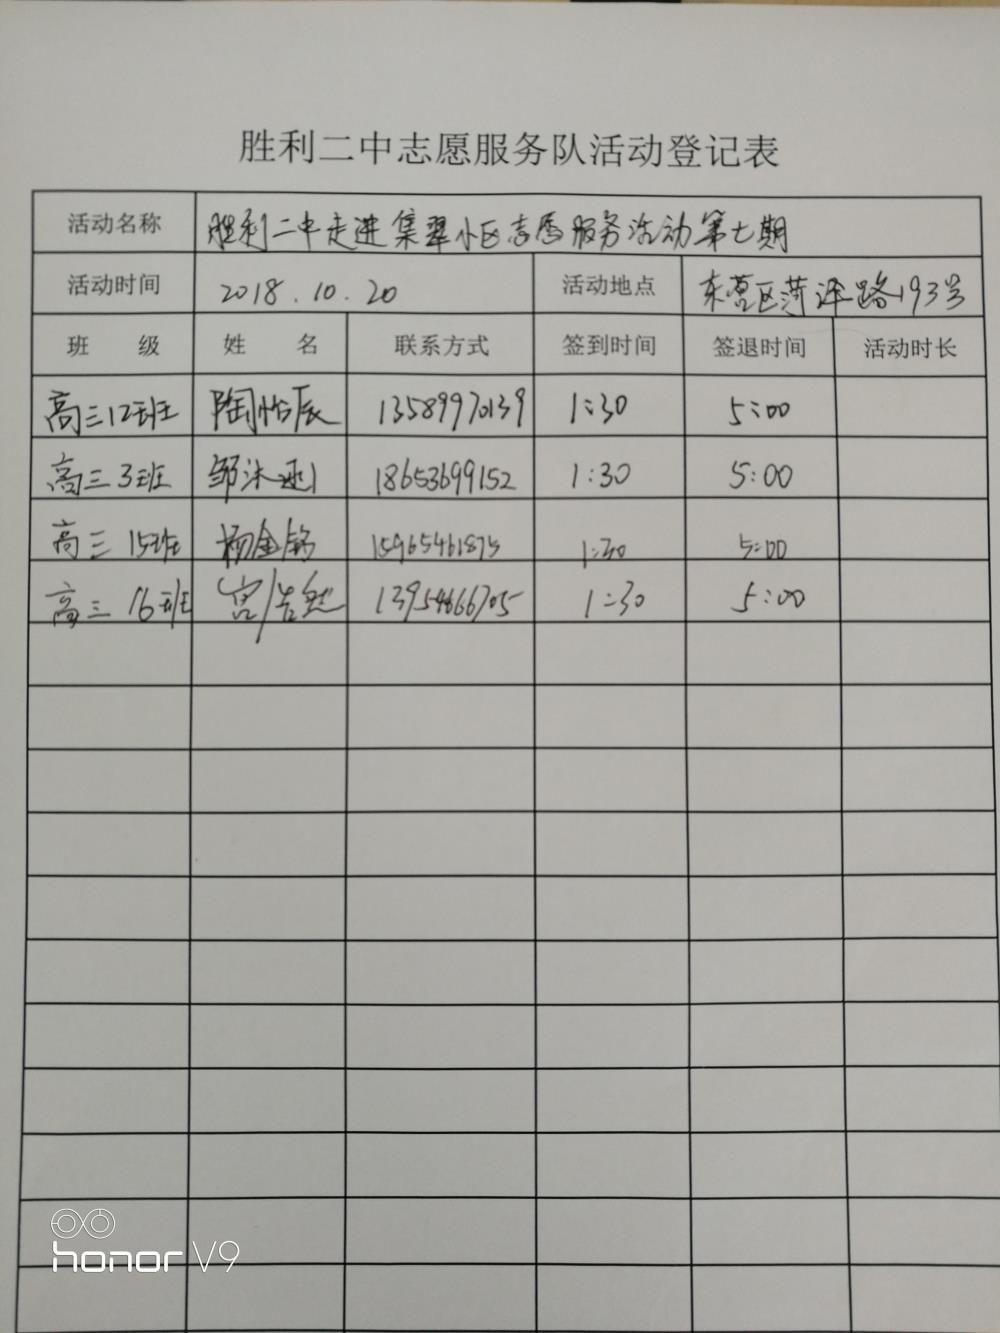 胜利二中志愿服务队活动登记表
活动名称 胜利二中走进集翠小区志愿服务活动第七期
活动时间 2018.10.20 活动地点 东营区菏泽路193号
班 级 姓 名 联系方式 签到时间 签退时间 活动时长
高三12班 陶怡辰 13589970139 1:30 5:00
高三3班 邹沐 18653699152 1:30 5:00
高三15班 杨金铭 15965461875 1:30 5:00
高三16班 宫浩然 13954666705 1:30 5:00
honor V9